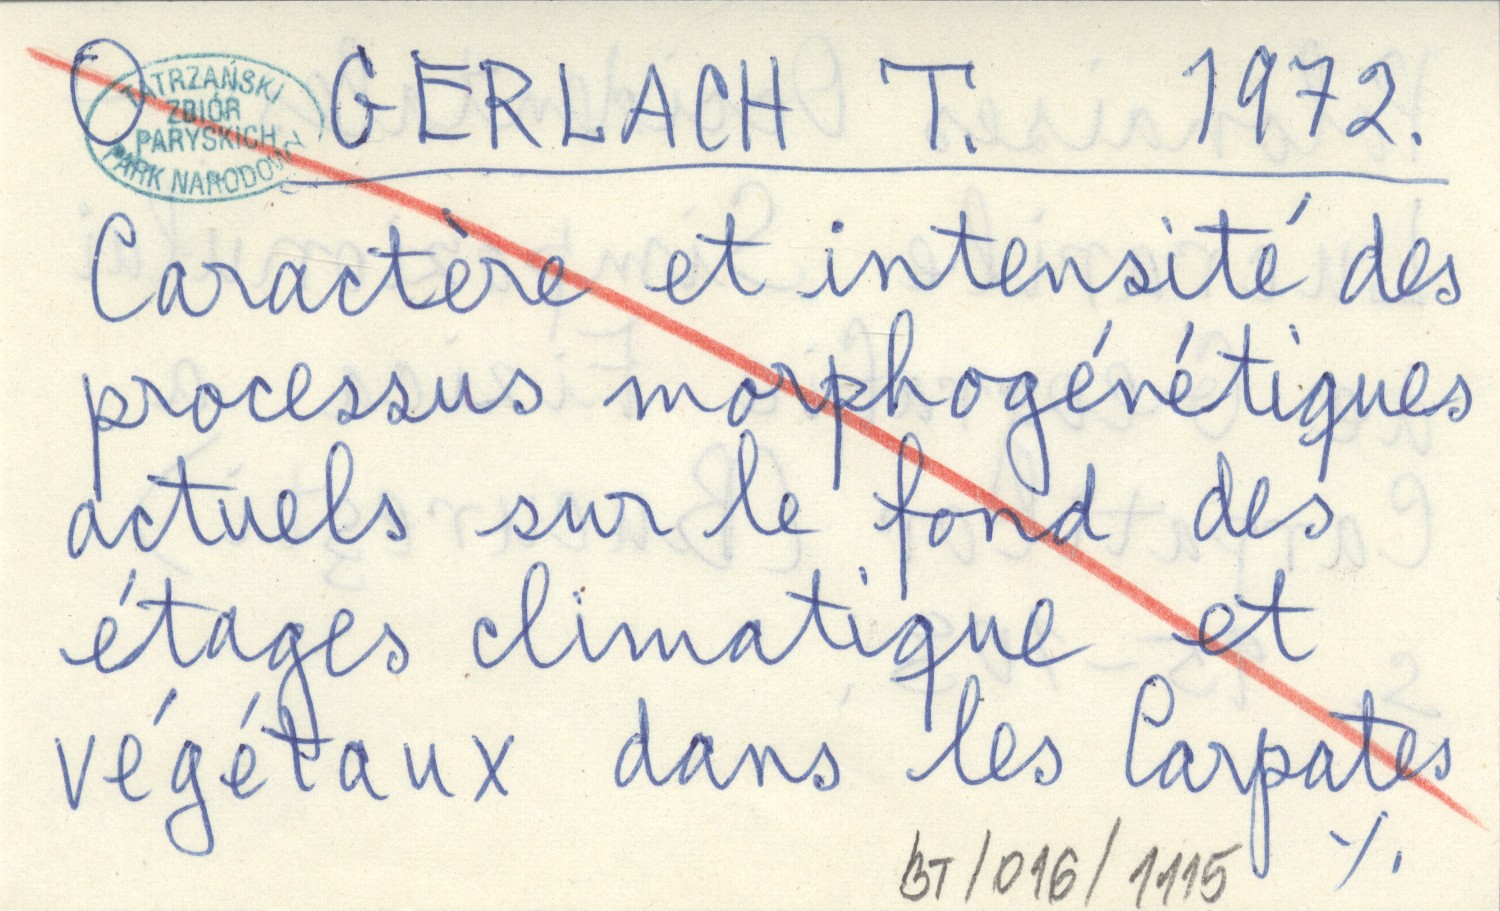 O GERLACH T. 1972.
TATRZAŃSKI
ZBIÓR
PARYSKICH
PARK NARODOWY
Caractère et intensité des
processus morphogénétiques
actuels sur le fond des
étages climatique et
végétaux dans les Carpates
·/.
BT/016/1115